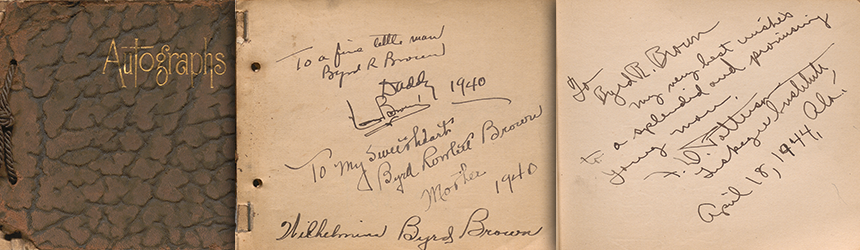 Autographs
To a fine little man
Byrd R Brown
Daddy 1940
Brown
To My Sweetheart
Byrd Rowlett Brown
Mother 1940
Wilhelmina Byrd Brown
To Byrd R. Brown
my very best wishes
to a splendid and promising
young man.
F. D. Patterson
Tuskegee Institute,
April 18, 1944, Ala.